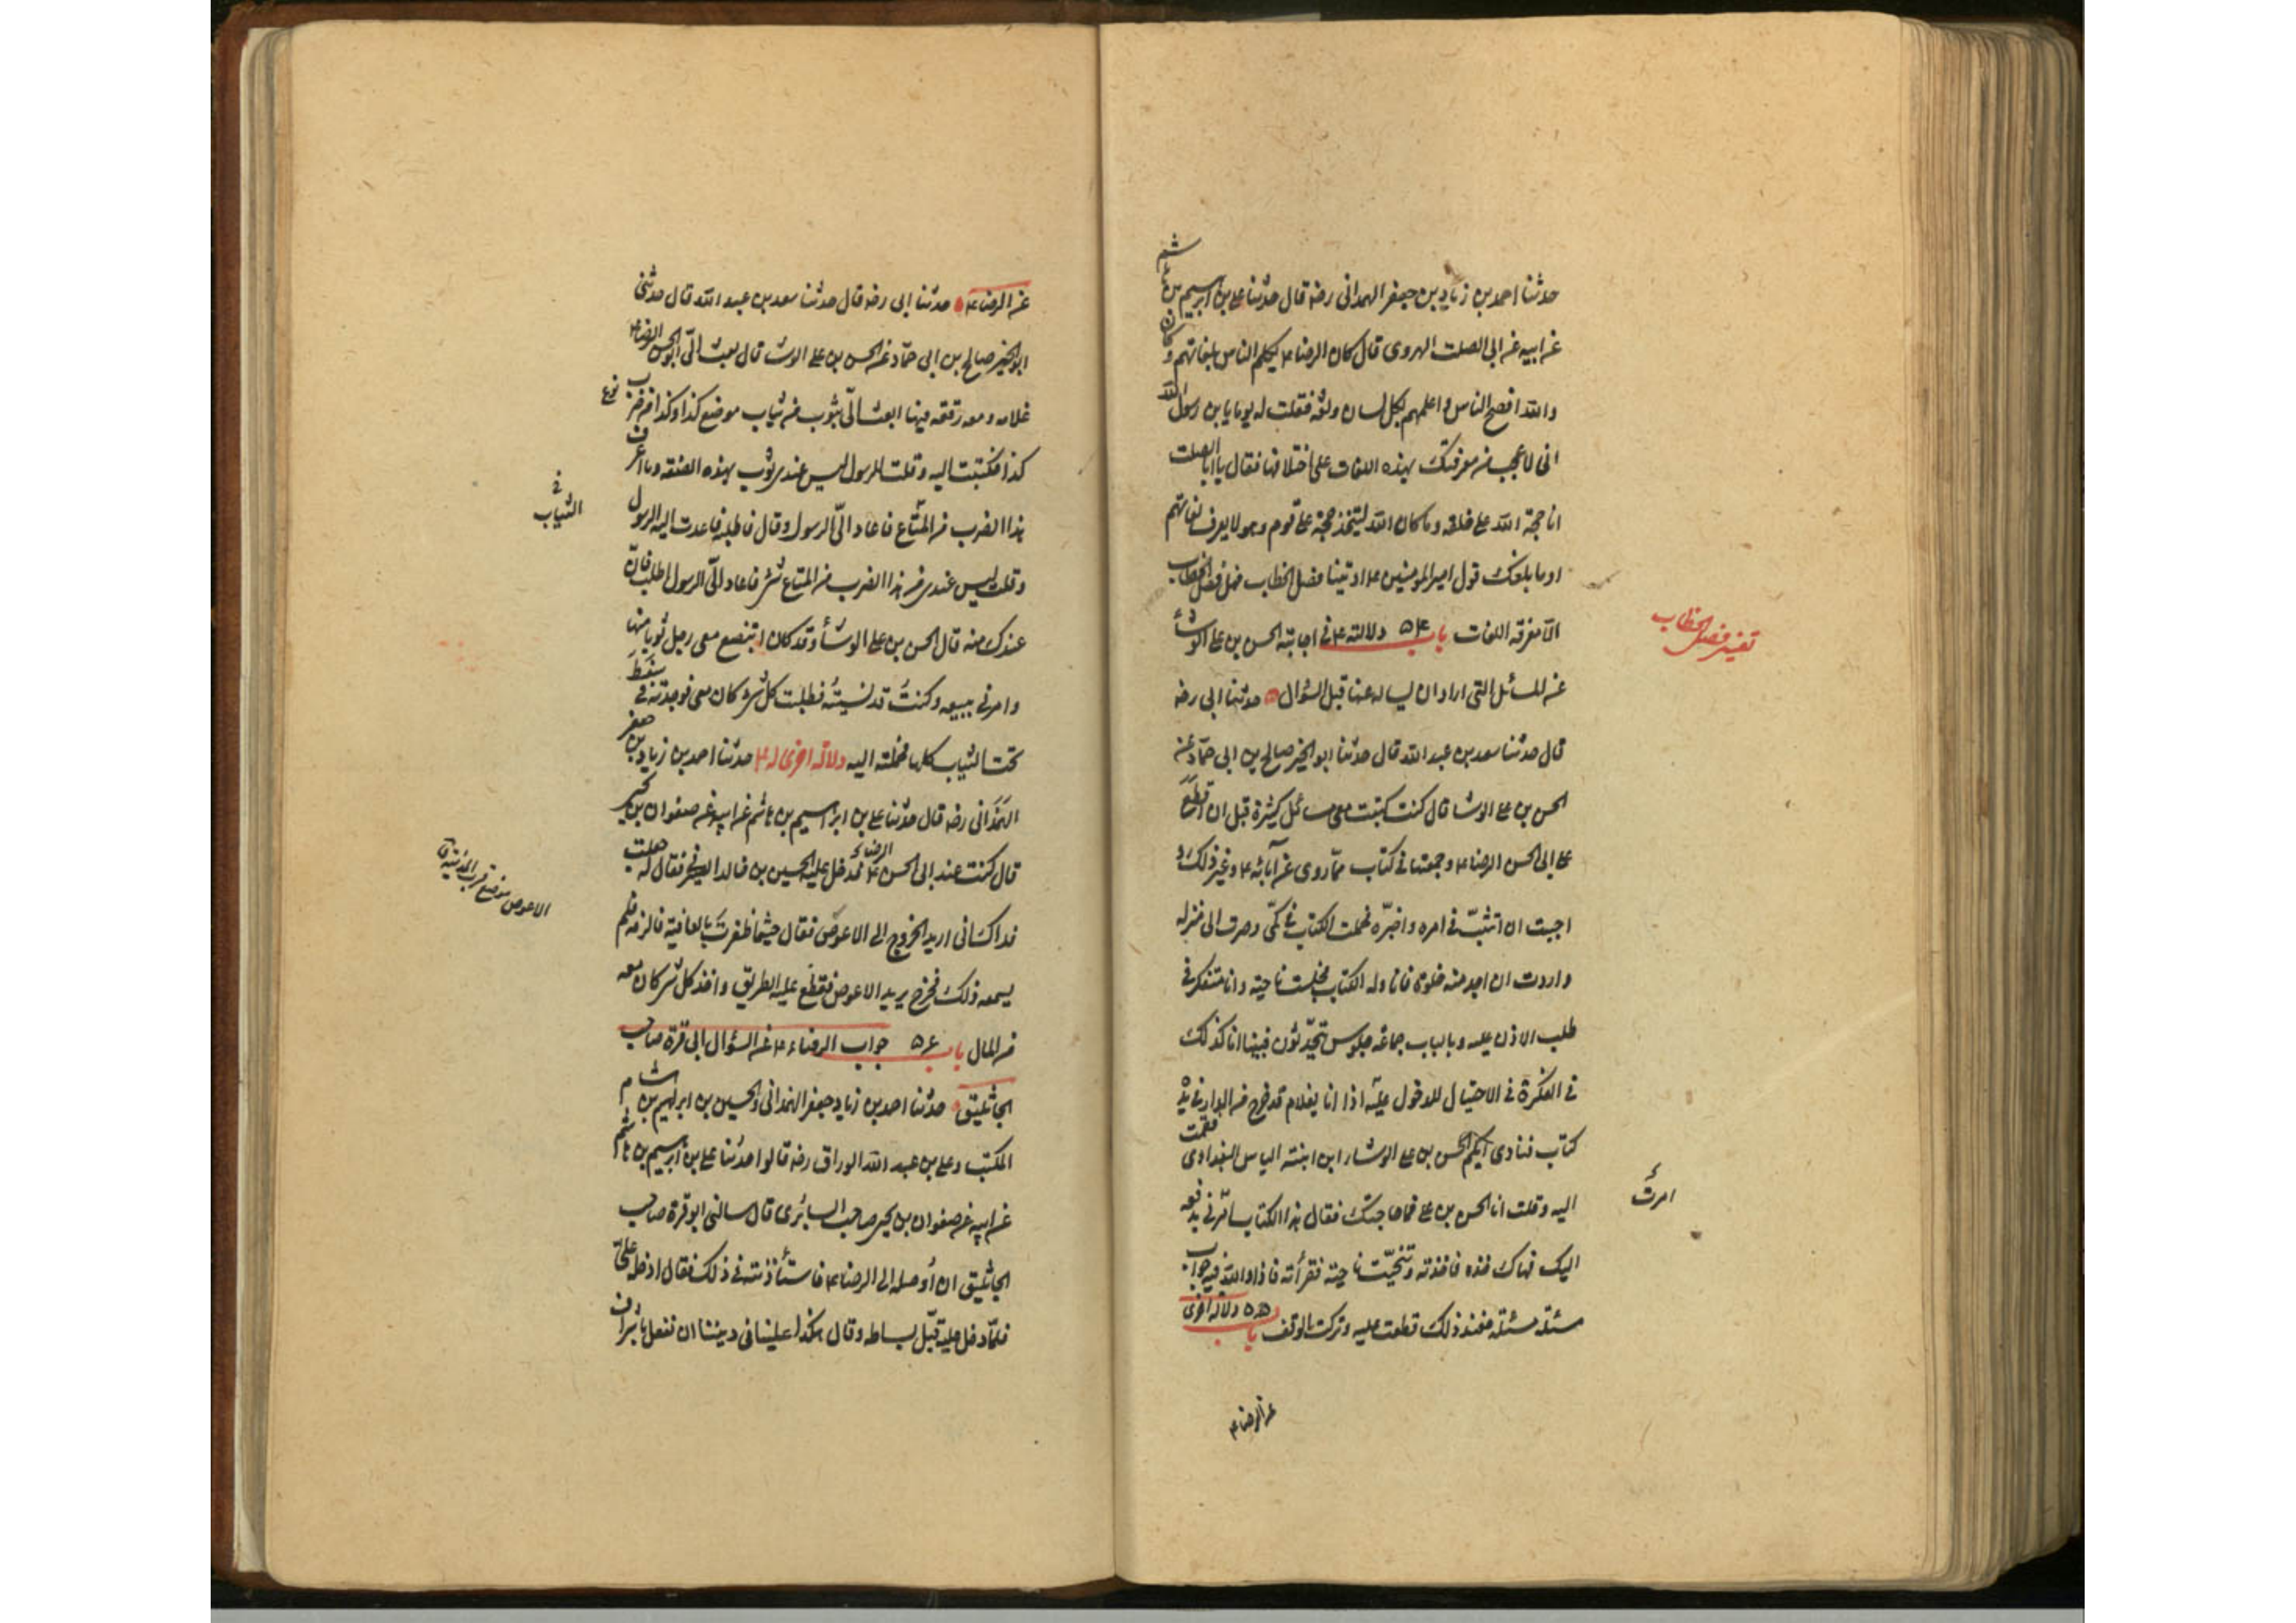 حدثنا احمد بن زياد بن جعفر الهمدانى رضه قال حدثنا على بن ابرهيم بن هاشم
عن ابيه عن ابى الصلت الهروى قال كان الرضا ع يكلم الناس بلغاتهم وكان
والله افصح الناس واعلمهم بكل لسان ولغة فقلت له يوما يا بن رسول الله
انى لاعجب من معرفتك بهذه اللغات على اختلافها فقال يا ابا الصلت
انا حجة الله على خلقه وما كان الله ليتخذ حجة على قوم وهو لا يعرف لغاتهم
او ما بلغك قول امير المومنين ع اوتينا فصل الخطاب فهل فصل الخطاب
تفسير فصل الخطاب
الا معرفة اللغات باب ٥٤ دلالته ع فى اجابته الحسن بن على الوشأ
عن المسائل التى اراد ان يساله عنها قبل السؤال حدثنا ابى رضه
قال حدثنا سعد بن عبد الله قال حدثنا ابو الخير صالح بن ابى حمّاد عن
الحسن بن على الوشا قال كنت كتبت معى مسائل كثيرة قبل ان اقطع
على ابى الحسن الرضا ع وجمعتها فى كتاب ممّا روى عن آبائه ع وغير ذلك و
احببت ان اتثبّت فى امره واختبره فحملت الكتاب فى كمّى وصرت الى منزله
واردت ان اجد منه خلوة فاناوله الكتاب فجلست ناحية وانا متفكر فى
طلب الاذن عليه وبالباب جماعة جلوس يتحدّثون فبينا انا كذلك
فى الفكرة فى الاحتيال للدخول عليه اذا انا بغلام قد خرج من الدار فى يده
كتاب فنادى ايكم الحسن بن على الوشا ابن ابنة الياس البغدادى فقمت
اليه وقلت انا الحسن بن على فما حاجتك فقال هذا الكتاب امرنى بدفعه
امرت
اليك فهاك خذه فاخذته وتنحّيت ناحية فقرأته فاذا والله فيه جواب
مسئلة مسئلة فعند ذلك قطعت عليه وتركت الوقف باب ٥٥ دلالة اخرى
عن الرضا ع
عن الرضا ع حدثنا ابى رضه قال حدثنا سعد بن عبد الله قال حدثنى
ابو الخير صالح بن ابى حمّاد عن الحسن بن على الوشا قال بعث الىّ ابو الحسن الرضا ع
غلامه ومعه رقعة فيها ابعث الىّ بثوب من ثياب موضع كذا وكذا من ضرب
نوع
كذا فكتبت اليه وقلت للرسول ليس عندى ثوب بهذه الصفة وما اعرف
هذا الضرب من المتاع فاعاد الىّ الرسول وقال فاطلبه فاعدت اليه الرسول
فى الثياب
وقلت ليس عندى من هذا الضرب من المتاع شىء فاعاد الىّ الرسول اطلب فان
عندك منه قال الحسن بن على الوشأ وقد كان ابتضع معى رجل ثوبا منها
وامرنى ببيعه وكنتُ قد نسيتُه فطلبت كل شىء كان معى فوجدته فى سفط
تحت الثياب كلها فحملته اليه دلالة اخرى له ع حدثنا احمد بن زياد بن جعفر
الهَمَدانى رضه قال حدثنا على بن ابراهيم بن هاشم عن ابيه عن صفوان بن يحيى
قال كنت عند ابى الحسن الرضا ع فدخل عليه الحسين بن خالد الصيرفى فقال له جعلت
فداك انى اريد الخروج الى الاعوض فقال حيثما ظفرت بالعافية فالزمه فلم
الاعوص موضع قرب المدينة ق
يسمعه ذلك فخرج يريد الاعوص فقطع عليه الطريق واخذ كل شىء كان معه
من المال باب ٥٦ جواب الرضا ع عن السؤال ابى قرة صاحب
الجاثليق حدثنا احمد بن زياد جعفر الهمدانى والحسين بن ابراهيم بن هشام
المكتب وعلى بن عبد الله الوراق رضه قالوا حدثنا على بن ابرهيم بن هاشم
عن ابيه عن صفوان بن يحيى صاحب السابرى قال سالنى ابو قرة صاحب
الجاثليق ان أوصله الى الرضا ع فاستأذنته فى ذلك فقال ادخله علىّ
فلمّا دخل عليه قبّل بساطه وقال هكذا علينا فى ديننا ان نفعل باشراف